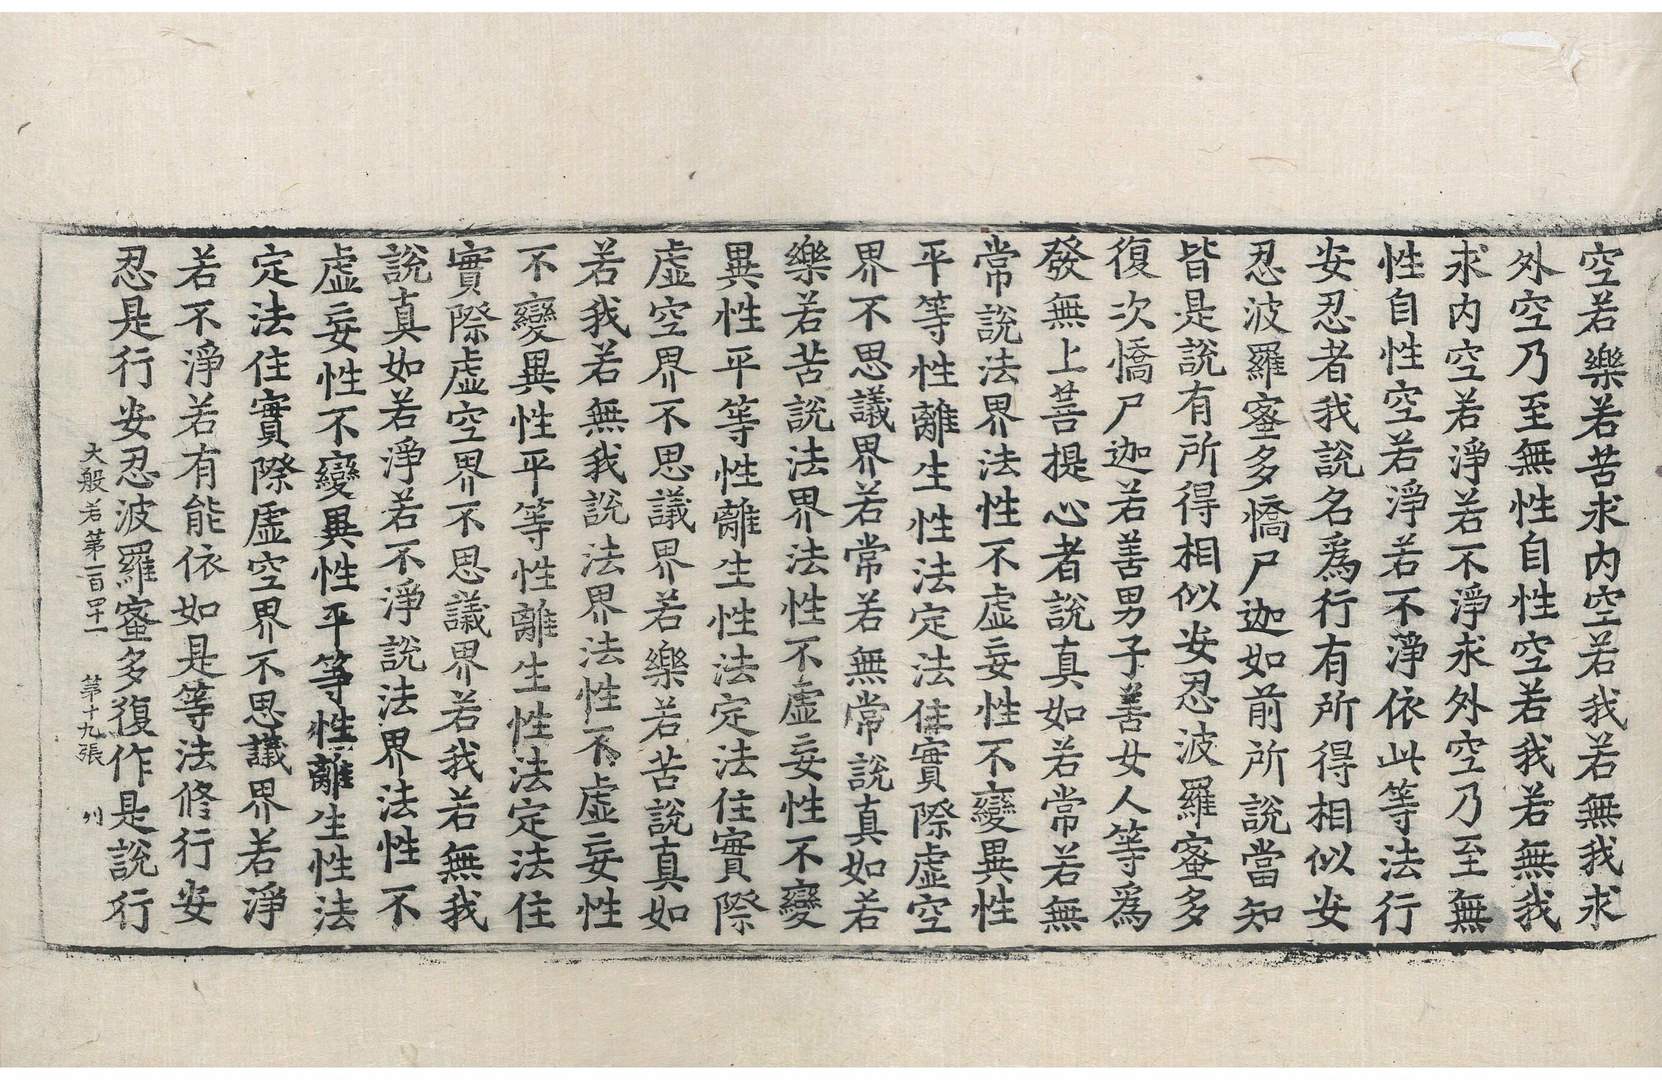 空若樂若苦求內空若我若無我求
外空乃至無性自性空若我若無我
求內空若淨若不淨求外空乃至無
性自性空若淨若不淨依此等法行
安忍者我說名爲行有所得相似安
忍波羅蜜多憍尸迦如前所說當知
皆是說有所得相似安忍波羅蜜多
復次憍尸迦若善男子善女人等爲
發無上菩提心者說真如若常若無
常說法界法性不虛妄性不變異性
平等性離生性法定法住實際虛空
界不思議界若常若無常說真如若
樂若苦說法界法性不虛妄性不變
異性平等性離生性法定法住實際
虛空界不思議界若樂若苦說真如
若我若無我說法界法性不虛妄性
不變異性平等性離生性法定法住
實際虛空界不思議界若我若無我
說真如若淨若不淨說法界法性不
虛妄性不變異性平等性離生性法
定法住實際虛空界不思議界若淨
若不淨若有能依如是等法修行安
忍是行安忍波羅蜜多復作是說行
大般若第一百四十一 第十九張